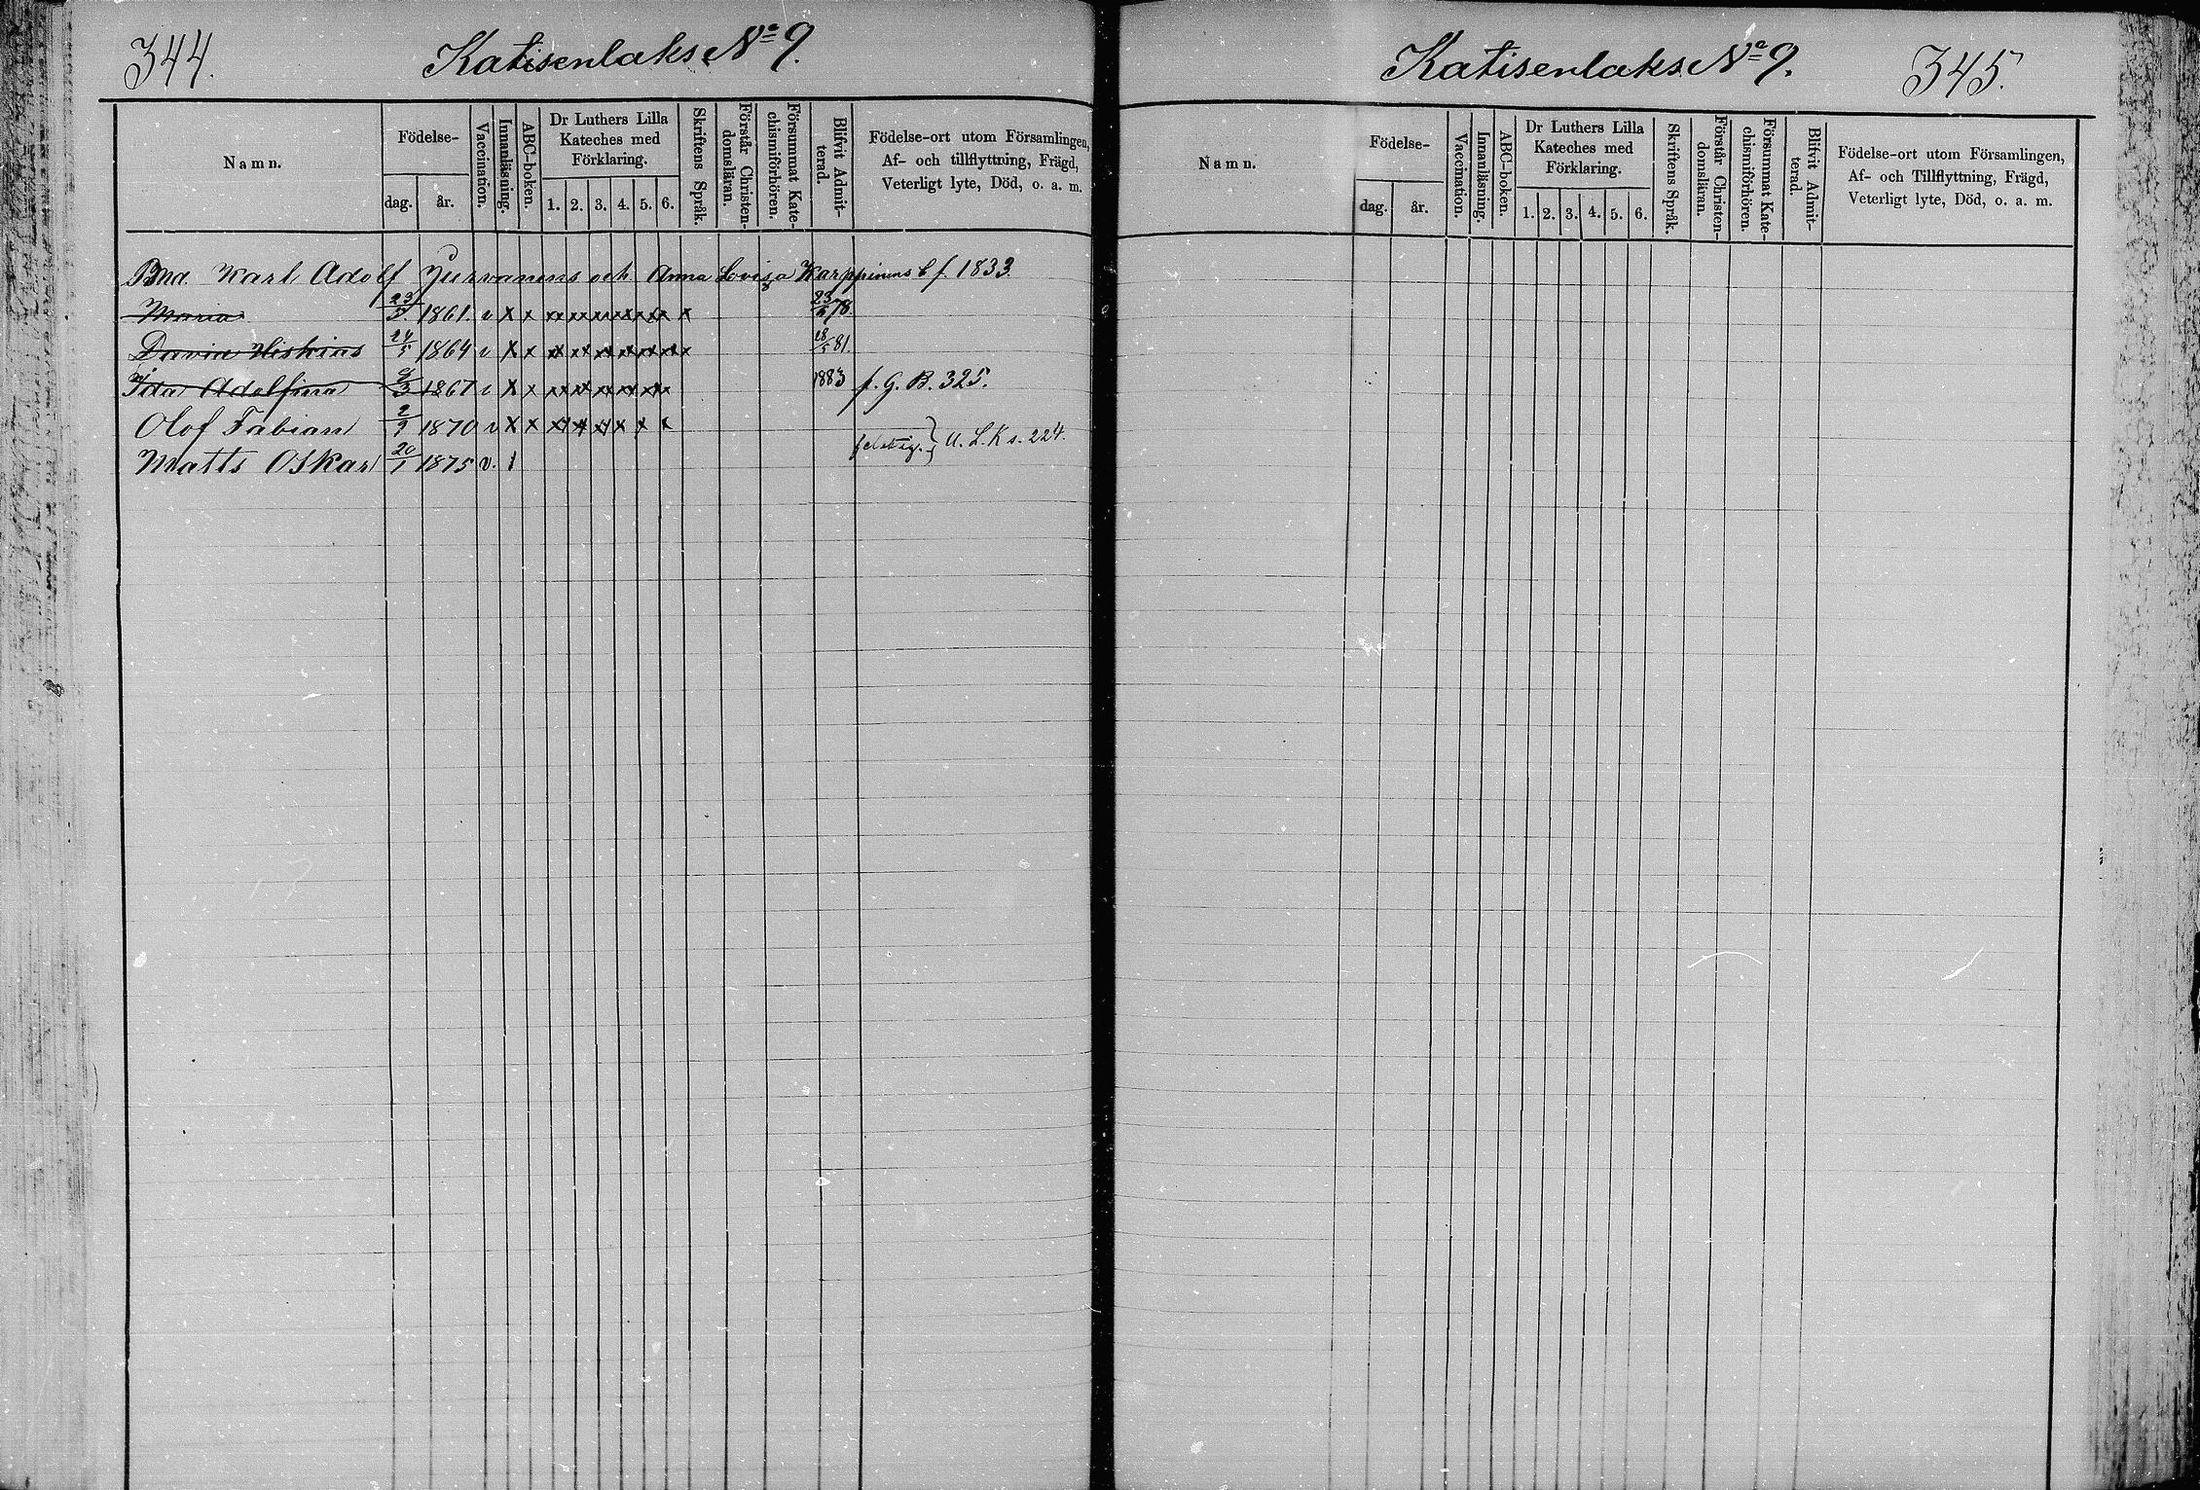 344.
Katisenlaks No 9.
Namn.
Födelse-
dag.
år.
Vaccination.
Innanläsning.
ABC-boken.
Dr Luthers Lilla
Kateches med
Förklaring.
1. 2. 3. 4. 5. 6.
Skriftens Språk.
Förstår Christen-
domsläran.
Försummat Kate-
chismiförhören.
Blifvit Admit-
terad.
Födelse-ort utom Församlingen,
Af- och tillflyttning, Frägd,
Veterligt lyte, Död, o. a. m.
Karl Adolf och Anna Lovisa Karppinens f. 1833.
Maria 1861. v x x x x x x x x x 78.
24/5 1864 v x x x x x x x x x 18/5 81.
Ida Adolfina 1867 v x x x x x x x x 1883 f. G. B. 325.
Olof Fabian 2/9 1870 v x x x x x x x x
U. L. K s. 224.
Matts Oskar 20/1 1875 v. 1
Katisenlaks No 9.
345.
Namn.
Födelse-
dag.
år.
Vaccination.
Innanläsning.
ABC-boken.
Dr Luthers Lilla
Kateches med
Förklaring.
1. 2. 3. 4. 5. 6.
Skriftens Språk.
Förstår Christen-
domsläran.
Försummat Kate-
chismiförhören.
Blifvit Admit-
terad.
Födelse-ort utom Församlingen,
Af- och Tillflyttning, Frägd,
Veterligt lyte, Död, o. a. m.